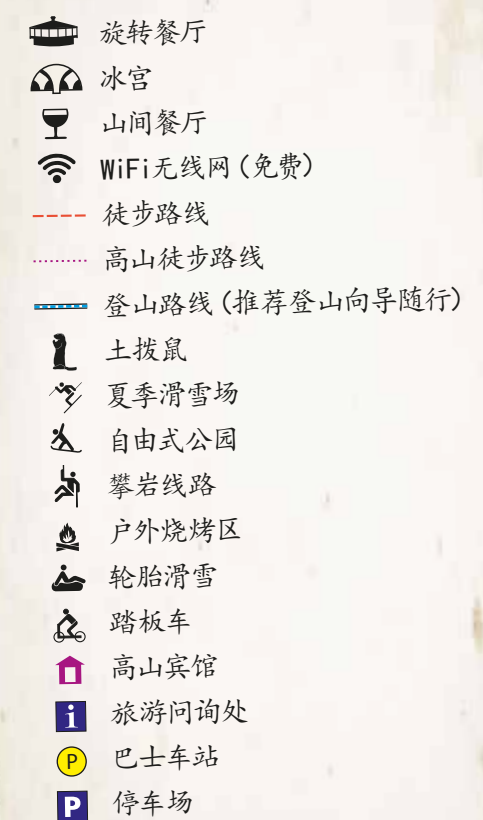 旋转餐厅
冰宫
山间餐厅
WiFi无线网(免费)
徒步路线
高山徒步路线
登山路线(推荐登山向导随行)
土拨鼠
夏季滑雪场
自由式公园
攀岩线路
户外烧烤区
轮胎滑雪
踏板车
高山宾馆
i 旅游问询处
P 巴士车站
P 停车场